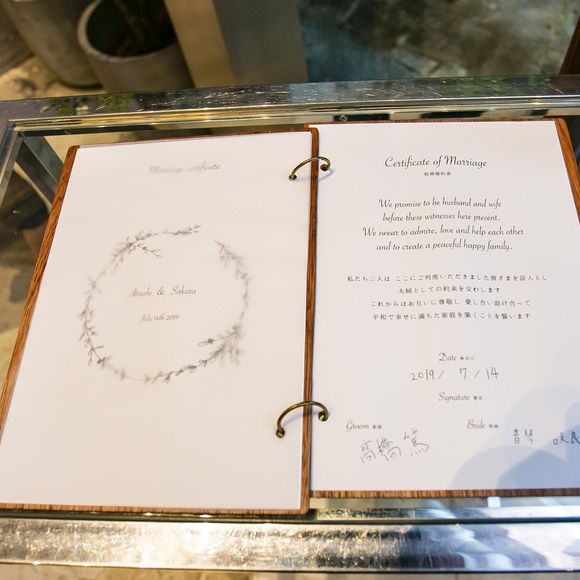 Marriage certificate
Atsushi & Sakura
July 14th 2019
Certificate of Marriage
結婚誓約書
We promise to be husband and wife
before these witnesses here present.
We swear to admire, love and help each other
and to create a peaceful happy family.
私たち二人は ここにご列席いただきました皆さまを証人とし
夫婦としての約束を交わします
これからはお互いに尊敬し 愛し合い助け合って
平和で幸せに満ちた家庭を築くことを誓います
Date 挙式日
2019 / 7 / 14
Signature 署名
Groom 新郎
Bride 新婦
高橋 篤